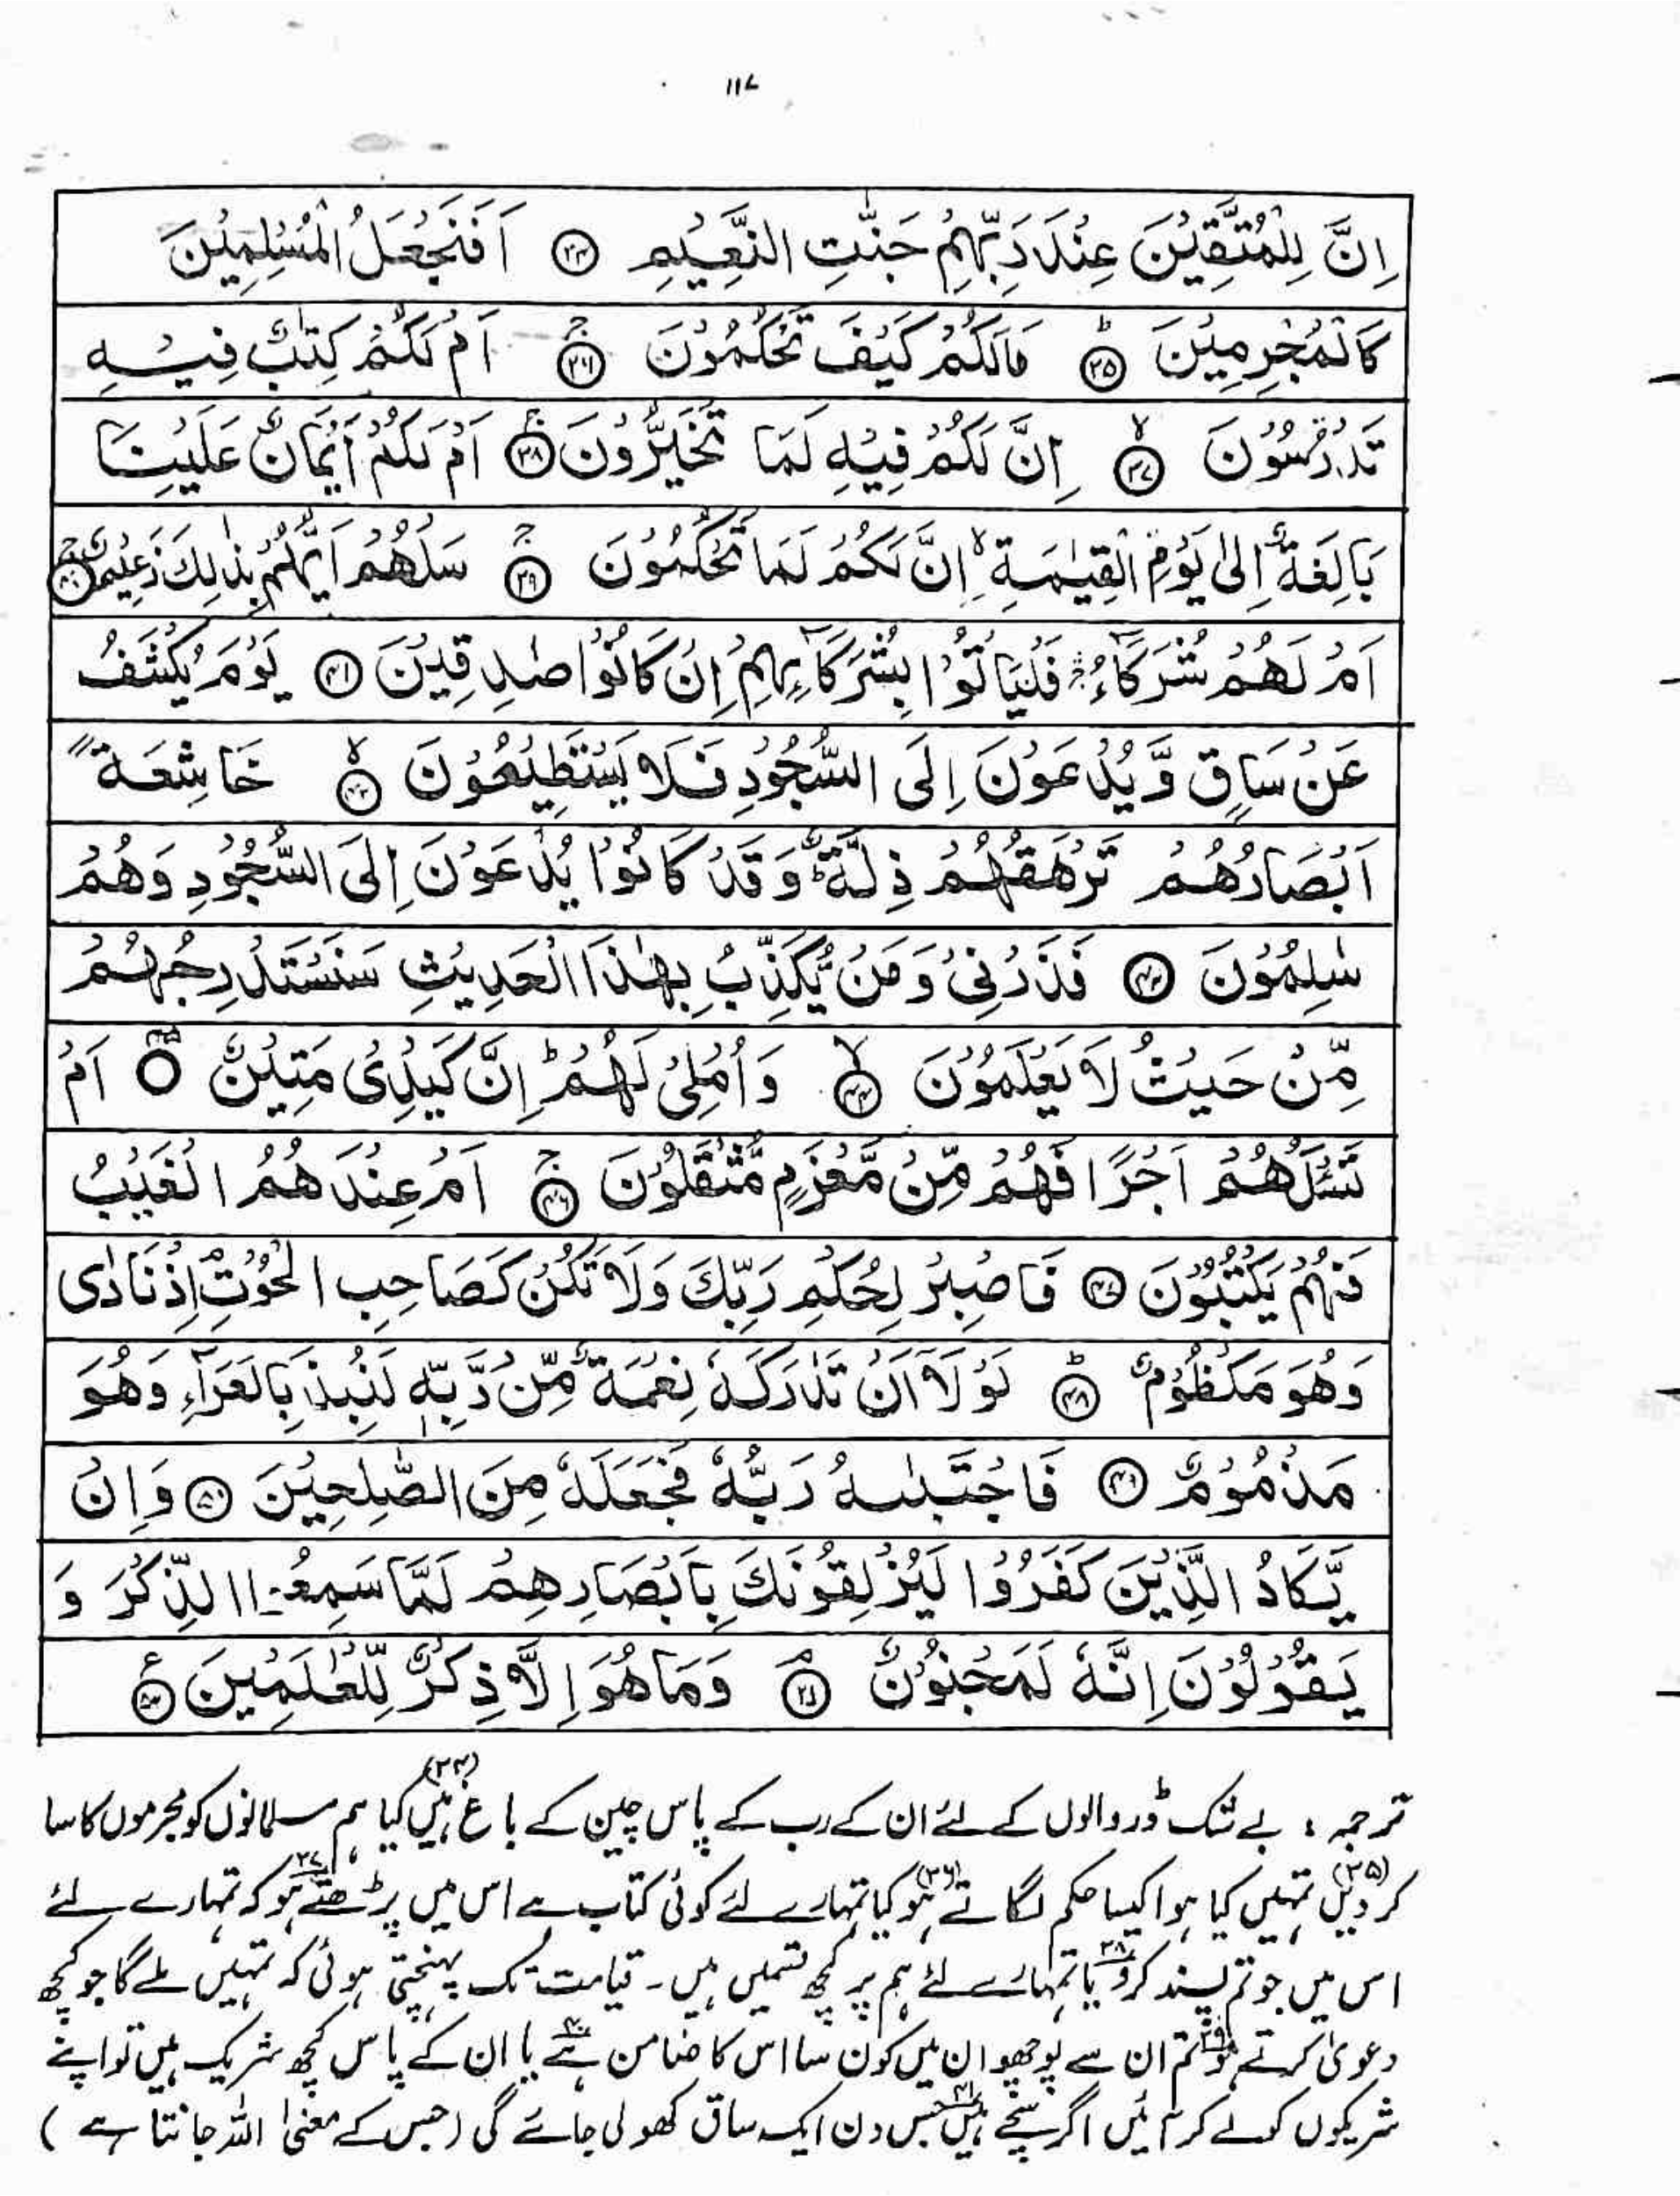 ۱۱۷
اِنَّ لِلْمُتَّقِيْنَ عِنْدَ رَبِّهِمْ جَنّٰتِ النَّعِيْمِ ۳۴ اَفَنَجْعَلُ الْمُسْلِمِيْنَ
كَالْمُجْرِمِيْنَ ؕ ۳۵ مَالَكُمْ كَيْفَ تَحْكُمُوْنَ ۚ ۳۶ اَمْ لَكُمْ كِتٰبٌ فِيْهِ
تَدْرُسُوْنَ ۙ ۳۷ اِنَّ لَكُمْ فِيْهِ لَمَا تَخَيَّرُوْنَ ۚ ۳۸ اَمْ لَكُمْ اَيْمَانٌ عَلَيْنَا
بَالِغَةٌ اِلٰى يَوْمِ الْقِيٰمَةِ ۙ اِنَّ لَكُمْ لَمَا تَحْكُمُوْنَ ۚ ۳۹ سَلْهُمْ اَيُّهُمْ بِذٰلِكَ زَعِيْمٌ ۚ ۴۰
اَمْ لَهُمْ شُرَكَآءُ ۚ فَلْيَاْتُوْا بِشُرَكَآىِٕهِمْ اِنْ كَانُوْا صٰدِقِيْنَ ۴۱ يَوْمَ يُكْشَفُ
عَنْ سَاقٍ وَّيُدْعَوْنَ اِلَى السُّجُوْدِ فَلَا يَسْتَطِيْعُوْنَ ۙ ۴۲ خَاشِعَةً
اَبْصَارُهُمْ تَرْهَقُهُمْ ذِلَّةٌ ؕ وَقَدْ كَانُوْا يُدْعَوْنَ اِلَى السُّجُوْدِ وَهُمْ
سٰلِمُوْنَ ۴۳ فَذَرْنِيْ وَمَنْ يُّكَذِّبُ بِهٰذَا الْحَدِيْثِ سَنَسْتَدْرِجُهُمْ
مِّنْ حَيْثُ لَا يَعْلَمُوْنَ ۙ ۴۴ وَاُمْلِيْ لَهُمْ ؕ اِنَّ كَيْدِيْ مَتِيْنٌ ۴۵ اَمْ
تَسْـَٔلُهُمْ اَجْرًا فَهُمْ مِّنْ مَّغْرَمٍ مُّثْقَلُوْنَ ۚ ۴۶ اَمْ عِنْدَهُمُ الْغَيْبُ
فَهُمْ يَكْتُبُوْنَ ۴۷ فَاصْبِرْ لِحُكْمِ رَبِّكَ وَلَا تَكُنْ كَصَاحِبِ الْحُوْتِ ۘ اِذْ نَادٰى
وَهُوَ مَكْظُوْمٌ ؕ ۴۸ لَوْلَآ اَنْ تَدٰرَكَهٗ نِعْمَةٌ مِّنْ رَّبِّهٖ لَنُبِذَ بِالْعَرَآءِ وَهُوَ
مَذْمُوْمٌ ۴۹ فَاجْتَبٰىهُ رَبُّهٗ فَجَعَلَهٗ مِنَ الصّٰلِحِيْنَ ۵۰ وَاِنْ
يَّكَادُ الَّذِيْنَ كَفَرُوْا لَيُزْلِقُوْنَكَ بِاَبْصَارِهِمْ لَمَّا سَمِعُوا الذِّكْرَ وَ
يَقُوْلُوْنَ اِنَّهٗ لَمَجْنُوْنٌ ۘ ۵۱ وَمَا هُوَ اِلَّا ذِكْرٌ لِّلْعٰلَمِيْنَ ۵۲ ع
ترجمہ : بے شک ڈر والوں کے لئے ان کے رب کے پاس چین کے باغ ہیں (۳۴) کیا ہم مسلمانوں کو مجرموں کا سا
کر دیں (۳۵) تمہیں کیا ہوا کیسا حکم لگاتے ہو (۳۶) کیا تمہارے لئے کوئی کتاب ہے اس میں پڑھتے ہو ۳۷ کہ تمہارے لئے
اس میں جو تم پسند کرو ۳۸ یا تمہارے لئے ہم پر کچھ قسمیں ہیں ۔ قیامت تک پہنچتی ہوئی کہ تمہیں ملے گا جو کچھ
دعویٰ کرتے ہو ۳۹ تم ان سے پوچھو ان میں کون سا اس کا ضامن ہے ۴۰ یا ان کے پاس کچھ شریک ہیں تو اپنے
شریکوں کو لے کر آئیں اگر سچے ہیں ۴۱ جس دن ایک ساق کھولی جائے گی (جس کے معنیٰ اللہ جانتا ہے)